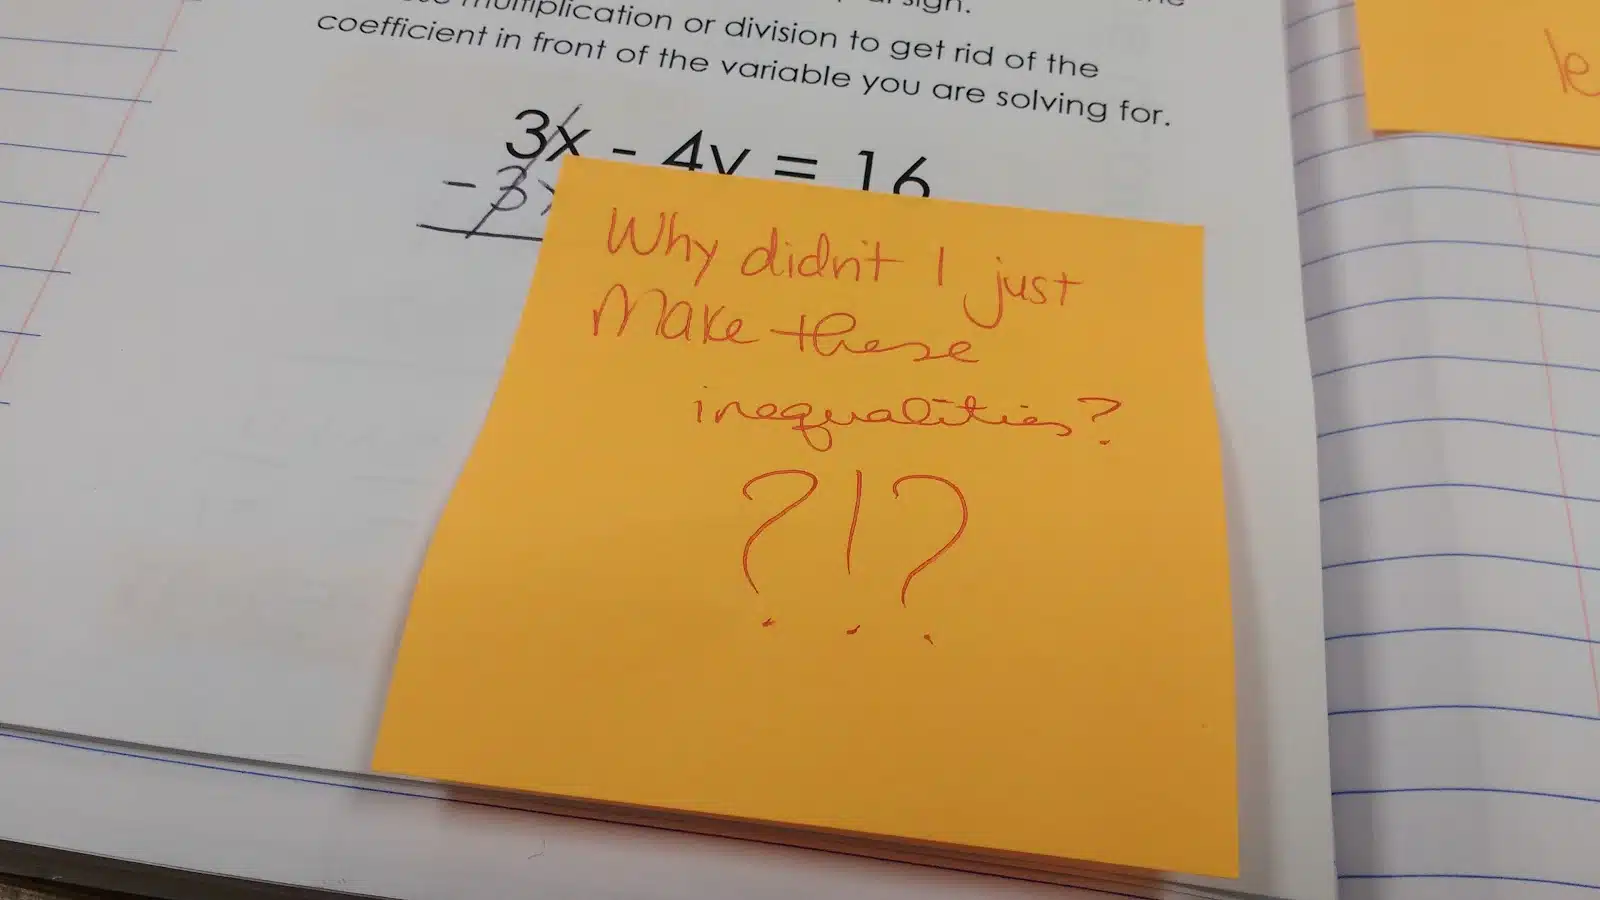 sign.
multiplication or division to get rid of the
coefficient in front of the variable you are solving for.
3x - 4y = 16
- 3x
Why didn't I just
Make these
inequalities?
?!?
le